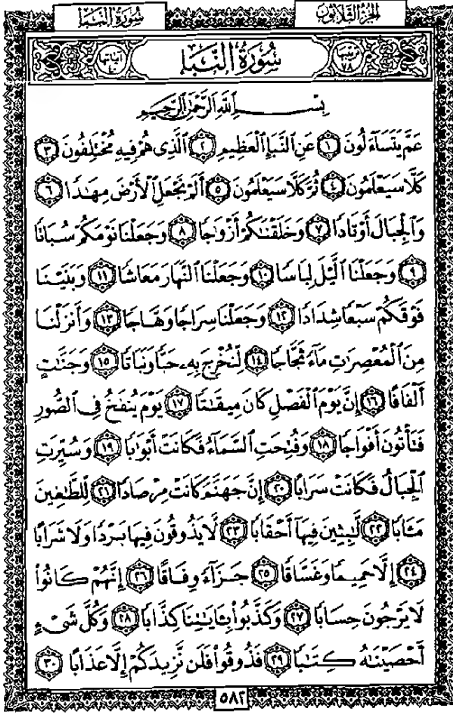 سُورَةُ النَّبَإِ
الجزء الثلاثون
سُورَةُ النَّبَإِ
بِسْمِ اللَّهِ الرَّحْمَٰنِ الرَّحِيمِ
عَمَّ يَتَسَاءَلُونَ ١ عَنِ النَّبَإِ الْعَظِيمِ ٢ الَّذِي هُمْ فِيهِ مُخْتَلِفُونَ ٣
كَلَّا سَيَعْلَمُونَ ٤ ثُمَّ كَلَّا سَيَعْلَمُونَ ٥ أَلَمْ نَجْعَلِ الْأَرْضَ مِهَٰدًا ٦
وَالْجِبَالَ أَوْتَادًا ٧ وَخَلَقْنَٰكُمْ أَزْوَٰجًا ٨ وَجَعَلْنَا نَوْمَكُمْ سُبَاتًا
٩ وَجَعَلْنَا الَّيْلَ لِبَاسًا ١٠ وَجَعَلْنَا النَّهَارَ مَعَاشًا ١١ وَبَنَيْنَا
فَوْقَكُمْ سَبْعًا شِدَادًا ١٢ وَجَعَلْنَا سِرَاجًا وَهَّاجًا ١٣ وَأَنزَلْنَا
مِنَ الْمُعْصِرَٰتِ مَاءً ثَجَّاجًا ١٤ لِّنُخْرِجَ بِهِ حَبًّا وَنَبَاتًا ١٥ وَجَنَّٰتٍ
أَلْفَافًا ١٦ إِنَّ يَوْمَ الْفَصْلِ كَانَ مِيقَٰتًا ١٧ يَوْمَ يُنفَخُ فِي الصُّورِ
فَتَأْتُونَ أَفْوَاجًا ١٨ وَفُتِحَتِ السَّمَاءُ فَكَانَتْ أَبْوَٰبًا ١٩ وَسُيِّرَتِ
الْجِبَالُ فَكَانَتْ سَرَابًا ٢٠ إِنَّ جَهَنَّمَ كَانَتْ مِرْصَادًا ٢١ لِّلطَّٰغِينَ
مَـَٔابًا ٢٢ لَّٰبِثِينَ فِيهَا أَحْقَابًا ٢٣ لَّا يَذُوقُونَ فِيهَا بَرْدًا وَلَا شَرَابًا
٢٤ إِلَّا حَمِيمًا وَغَسَّاقًا ٢٥ جَزَاءً وِفَاقًا ٢٦ إِنَّهُمْ كَانُوا
لَا يَرْجُونَ حِسَابًا ٢٧ وَكَذَّبُوا بِـَٔايَٰتِنَا كِذَّابًا ٢٨ وَكُلَّ شَيْءٍ
أَحْصَيْنَٰهُ كِتَٰبًا ٢٩ فَذُوقُوا فَلَن نَّزِيدَكُمْ إِلَّا عَذَابًا ٣٠
٥٨٢